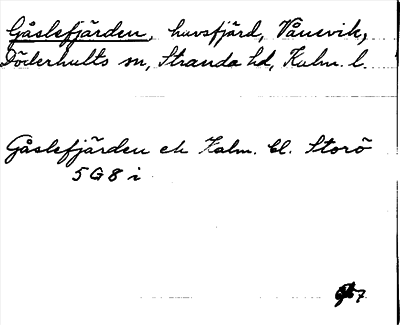 Gåslefjärden, havsfjärd, Vånevik,
Döderhults sn, Stranda hd, Kalm. l.
Gåslefjärden ek Kalm. bl. Storö
5G8 i